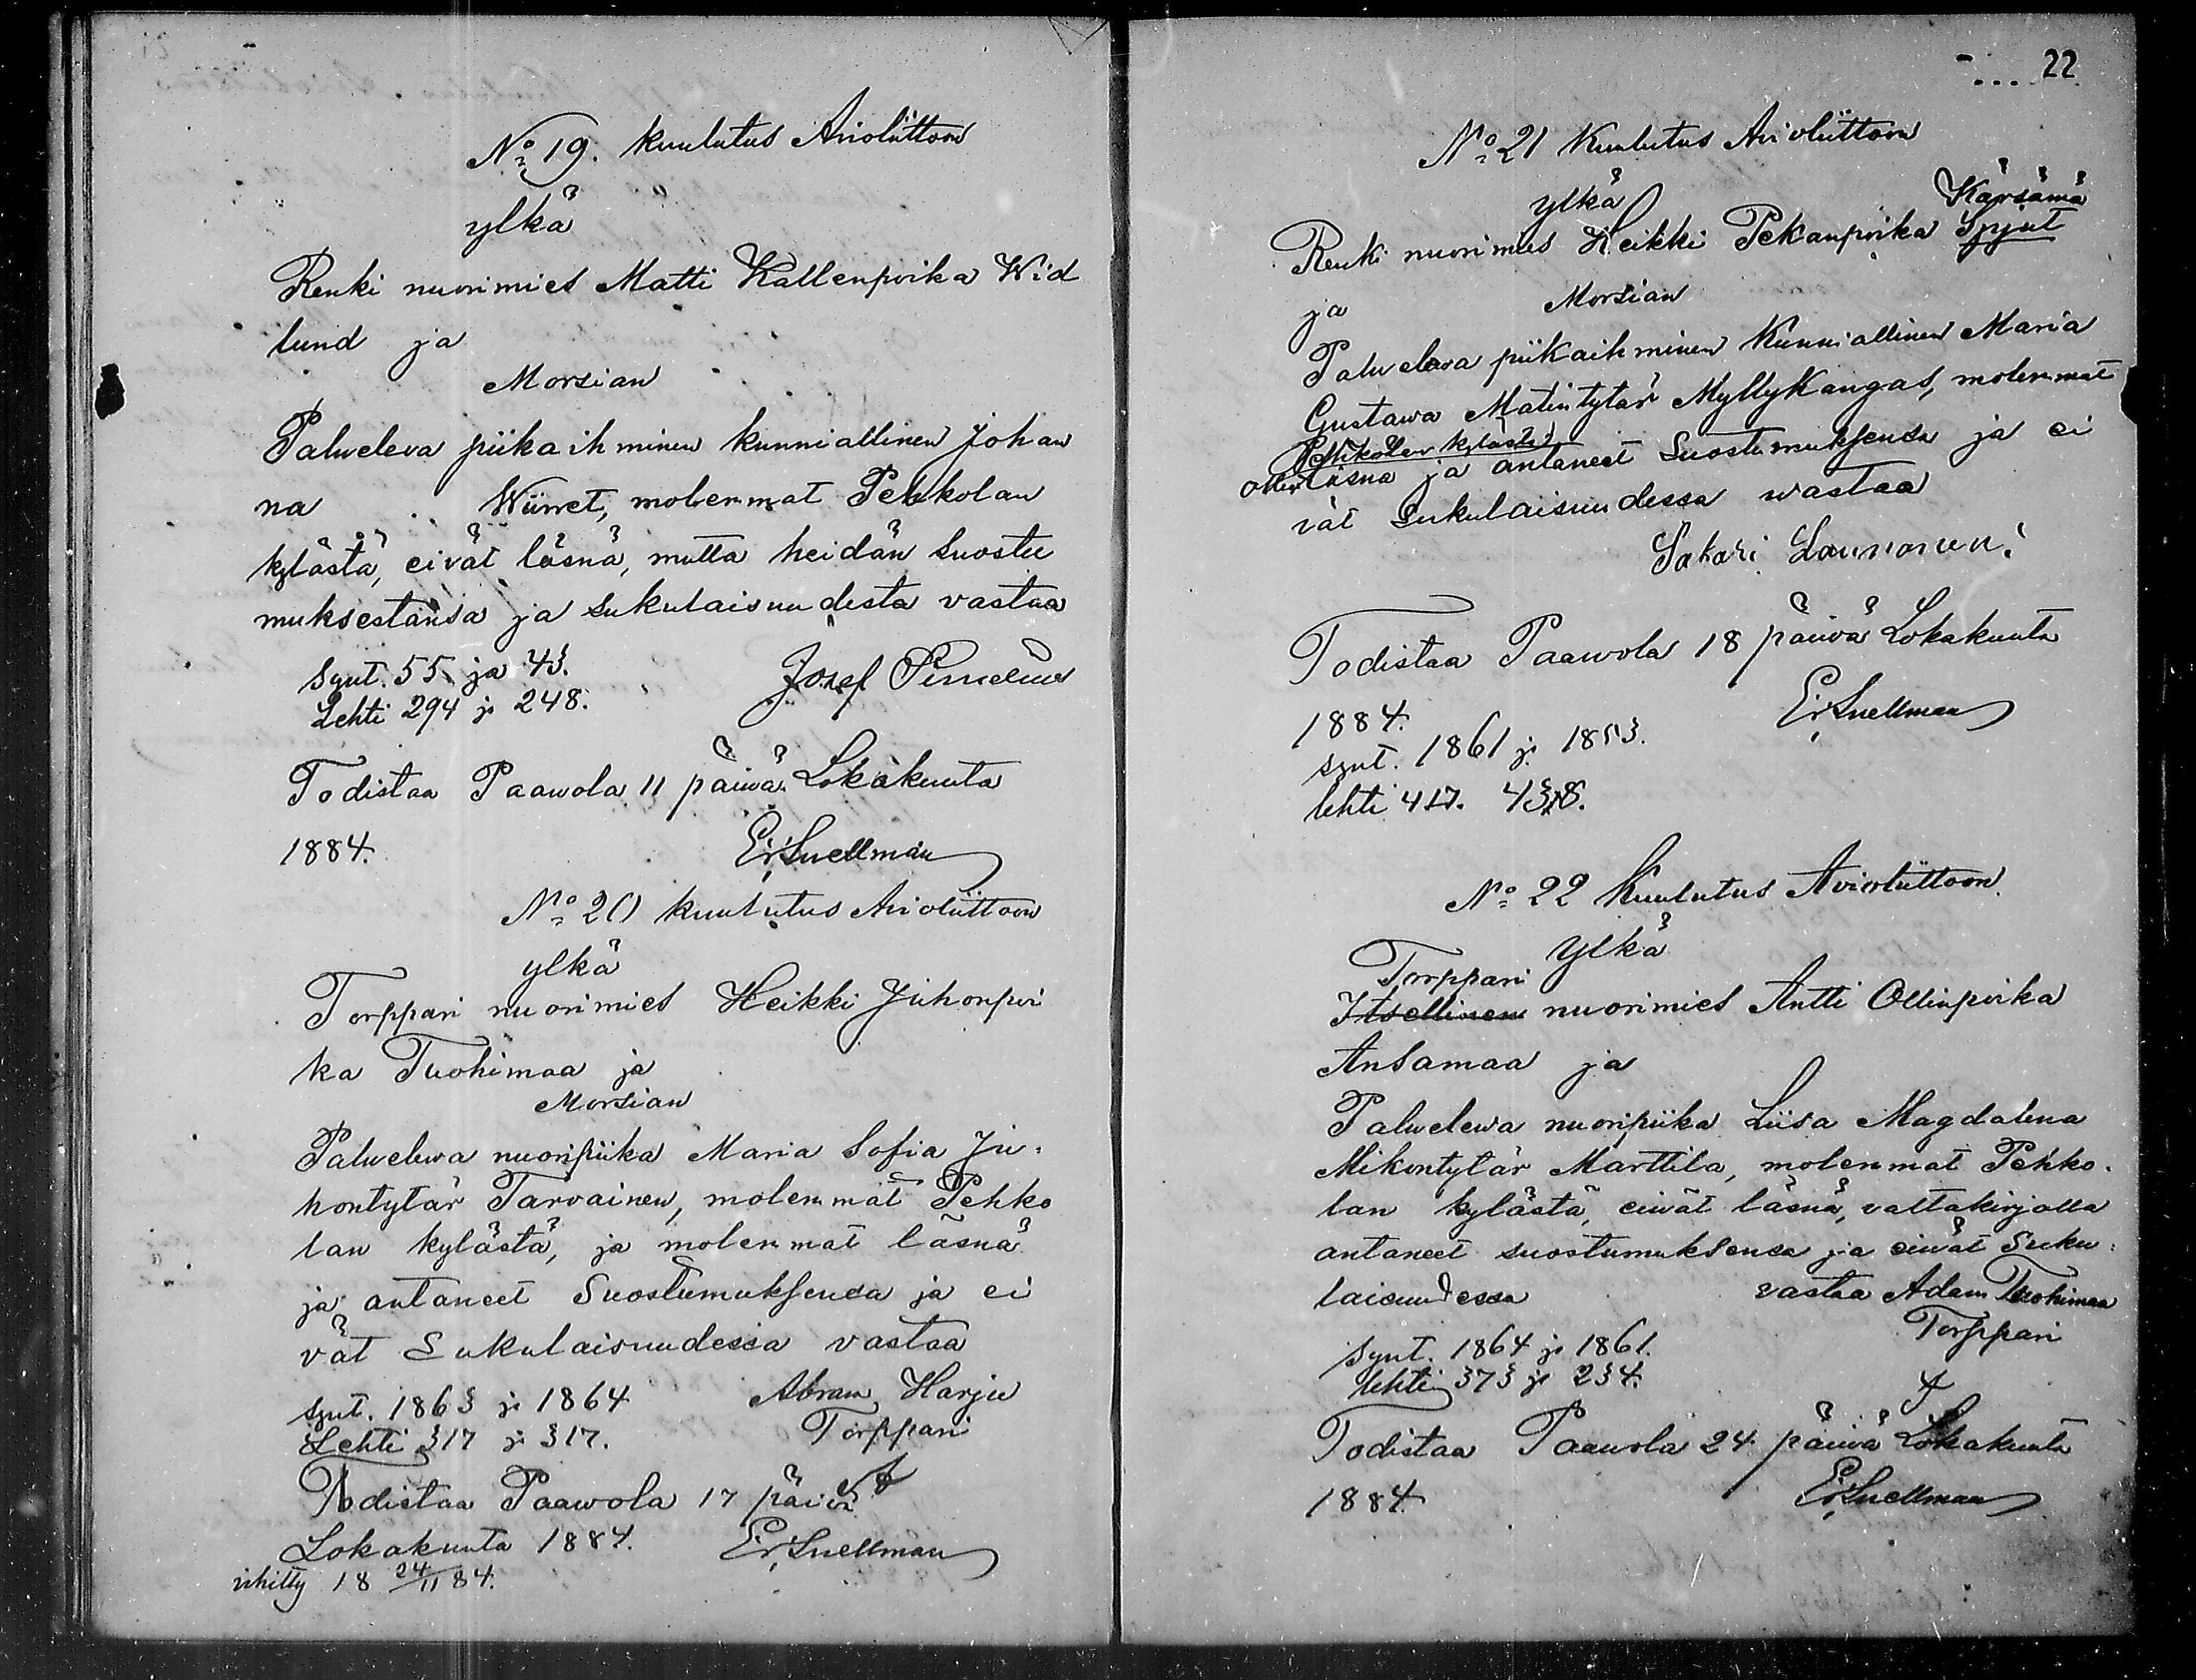 No 19. kuulutus Avioliittoon
ylkä
Renki nuorimies Matti Kallenpoika Wid
lund ja
Morsian
Palveleva piika ihminen kunniallinen Johan
na Wiirret, molemmat Pehkolan
kylästä, eivät läsnä, mutta heidän suostu
muksestansa ja sukulaisuudesta vastaa
synt. 55 ja 43.
Josef
Lehti 294 ja 248.
Todistaa Paawola 11 päivä Lokakuuta
1884. Er. Snellman
No 20 kuulutus Avioliittoon
ylkä
Torppari nuorimies Heikki Juhonpoi
ka Tuohimaa ja
Morsian
Palvelewa nuoripiika Maria Sofia Ju-
hontytär Tarvainen, molemmat Pehko
lan kylästä, ja molemmat läsnä
ja antaneet Suostumuksensa ja ei
vät Sukulaisuudessa vastaa
synt. 1863 ja 1864 Abram Harju
Lehti 317 ja 317. Torppari
Todistaa Paawola 17 päivä
Lokakuuta 1884. Er. Snellman
vihitty 18 24/11 84.
22
No 21 Kuulutus Avioliittoon
ylkä Kärsämä
Renki nuorimies Heikki Pekanpoika Spjut
ja Morsian
Palveleva piikaihminen Kunniallinen Maria
Gustawa Matintytär Myllykangas, molemmat
Pehkolan kylästä
ollen läsnä ja antaneet Suostumuksensa ja ei
vät Sukulaisuudessa wastaa
Sakari Lounonen.
Todistaa Paawola 18 päivä Lokakuuta
1884. Er. Snellman
synt. 1861 ja 1853.
lehti 417. 438.
No 22 Kuulutus Avioliittoon
ylkä
Torppari
Itsellinen nuorimies Antti Ollinpoika
Ansamaa ja
Palvelewa nuoripiika Liisa Magdalena
Mikontytär Marttila, molemmat Pehko-
lan kylästä, eiwät läsnä, valtakirjalla
antaneet suostumuksensa ja eiwät Suku-
laisuudessa vastaa Adam Tuohimaa
synt. 1864 ja 1861. Torppari
lehti 373 ja 234.
Todistaa Paawola 24 päivä Lokakuuta
1884 Er. Snellman